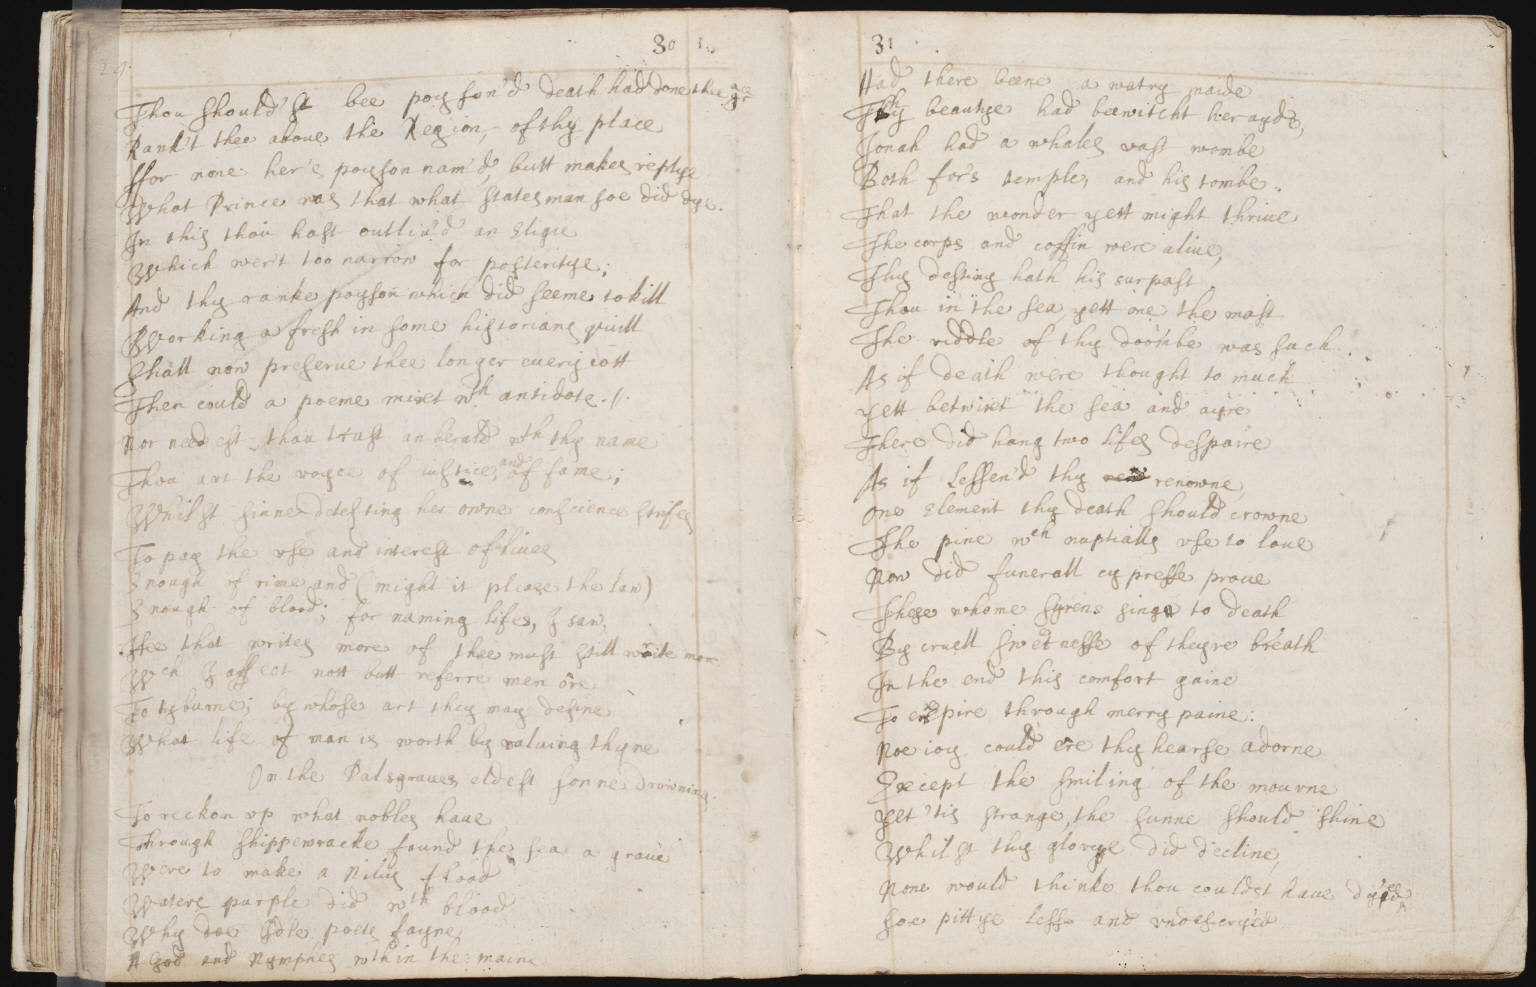 30
Thou should'st bee poyson'd death had done thee
Rank't thee aboue the Region, of thy place
ffor none her's poyson nam'd, butt makes replye
What Prince was that what statesman soe did dye.
In this thou hast outliu'd an Eligie
Which wer't too narrow for posteritye;
And thy ranke poyson which did seeme to kill
Working a fresh in some historians quill
Shall now preserue thee longer euery iott
Then could a poeme mixt wth antidote.//.
Nor need'est thou trust an herald wth thy name
Thou art the voyce of iustice, and of fame;
Whilst sinne detesting her owne conscience striues
To pay the vse and interest of liues
Enough of rime and (might it please the law)
Enough of blood; for naming lifes, I saw,
Hee that writes more of thee must still write more
Wch I affect nott butt referre men ore
To tyburne; by whose art they may define
What life of man is worth by valuing thyne
On the Palsgraues eldest sonne drowning.
To reckon vp what nobles haue
Through shippewracke found the sea a graue
Were to make a Nilus flood
Waters purple did wth blood
Why doe Idle poets fayne
A God and Nymphes wthin the maine
31
Had there beene a watry maide
Thy beautye had bewitcht her ayde,
Jonah had a whales vast wombe
Both for's temple, and his tombe.
That the wonder yett might thriue
The corps and coffin were aliue,
Thy destiny hath his surpast
Thou in the sea yett one the mast
The riddle of thy doombe was such
As if death were thought to much
yett betwixt the sea and ayre
There did hang two lifes despaire
As if lessen'd thy renowne
One Element thy death should crowne
The pine wch nuptialls vse to loue
Now did funerall cypresse proue
These whome syrens singe to death
By cruell swetnesse of theyre breath
In the end this comfort gaine
To expire through merry paine:
Noe ioy could ere thy hearse adorne
Except the smiling of the mourne
Yet 'tis strange, the sunne should shine
Whilst thy glorye did decline,
None would thinke thou couldst haue dyed,
Soe pittye lesse and vndescryed